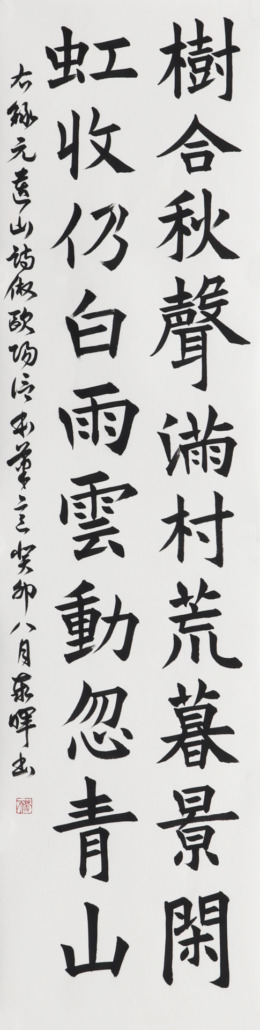 樹合秋聲滿村荒暮景閑
虹收仍白雨雲動忽青山
右錄元遺山詩倣歐陽詢書筆意癸卯八月東暉書